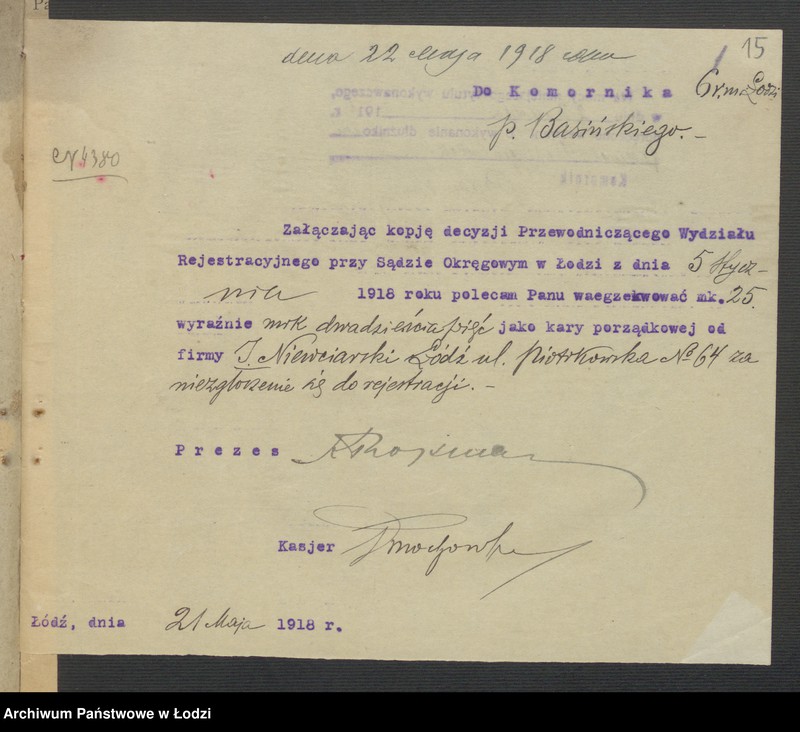 15
dnia 22 Maja 1918 roku
Do Komornika 6 r. m. Łodzi
p. Basińskiego. –
№ 4380
Załączając kopję decyzji Przewodniczącego Wydziału
Rejestracyjnego przy Sądzie Okręgowym w Łodzi z dnia 5 stycz-
nia 1918 roku polecam Panu waegzekwować mk. 25.
wyraźnie mrk dwadzieścia pięć jako kary porządkowej od
firmy I. Niewciarski Łódź ul. Piotrkowska № 64 za
niezgłoszenie się do rejestracji. –
Prezes
Kasjer
Łódź, dnia 21 Maja 1918 r.
Archiwum Państwowe w Łodzi